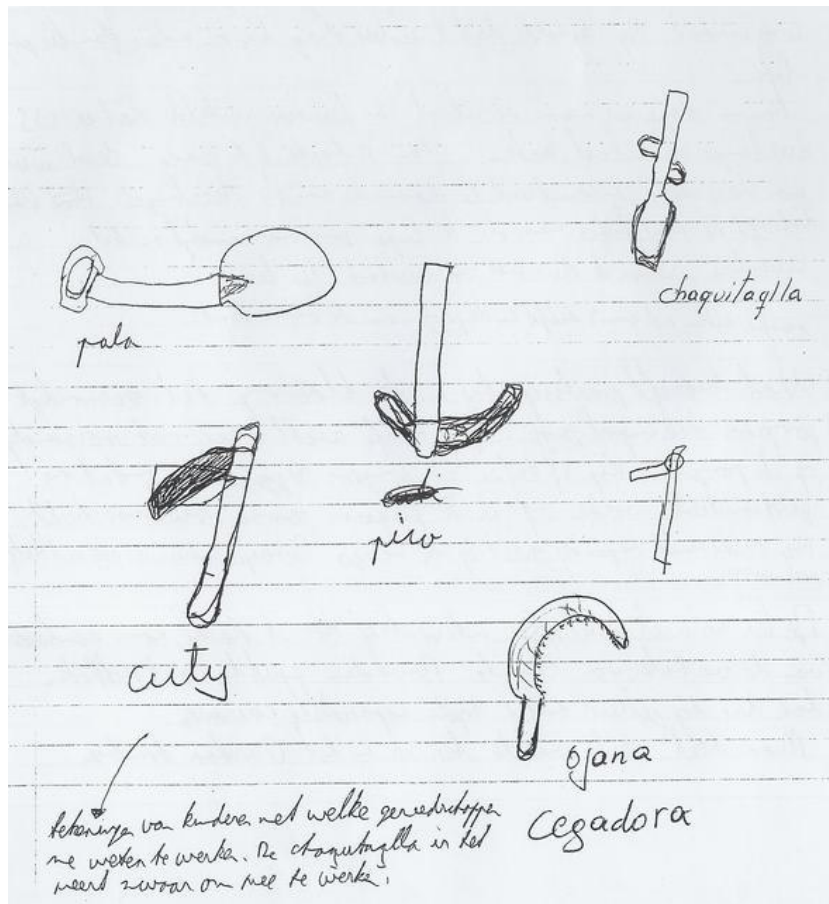 chaquitaglla
pala
pico
cuty
ojana
Cegadora
tekeningen van kinderen met welke gereedschappen
ze weten te werken. De chaquitaglla is het
meest zwaar om mee te werken.